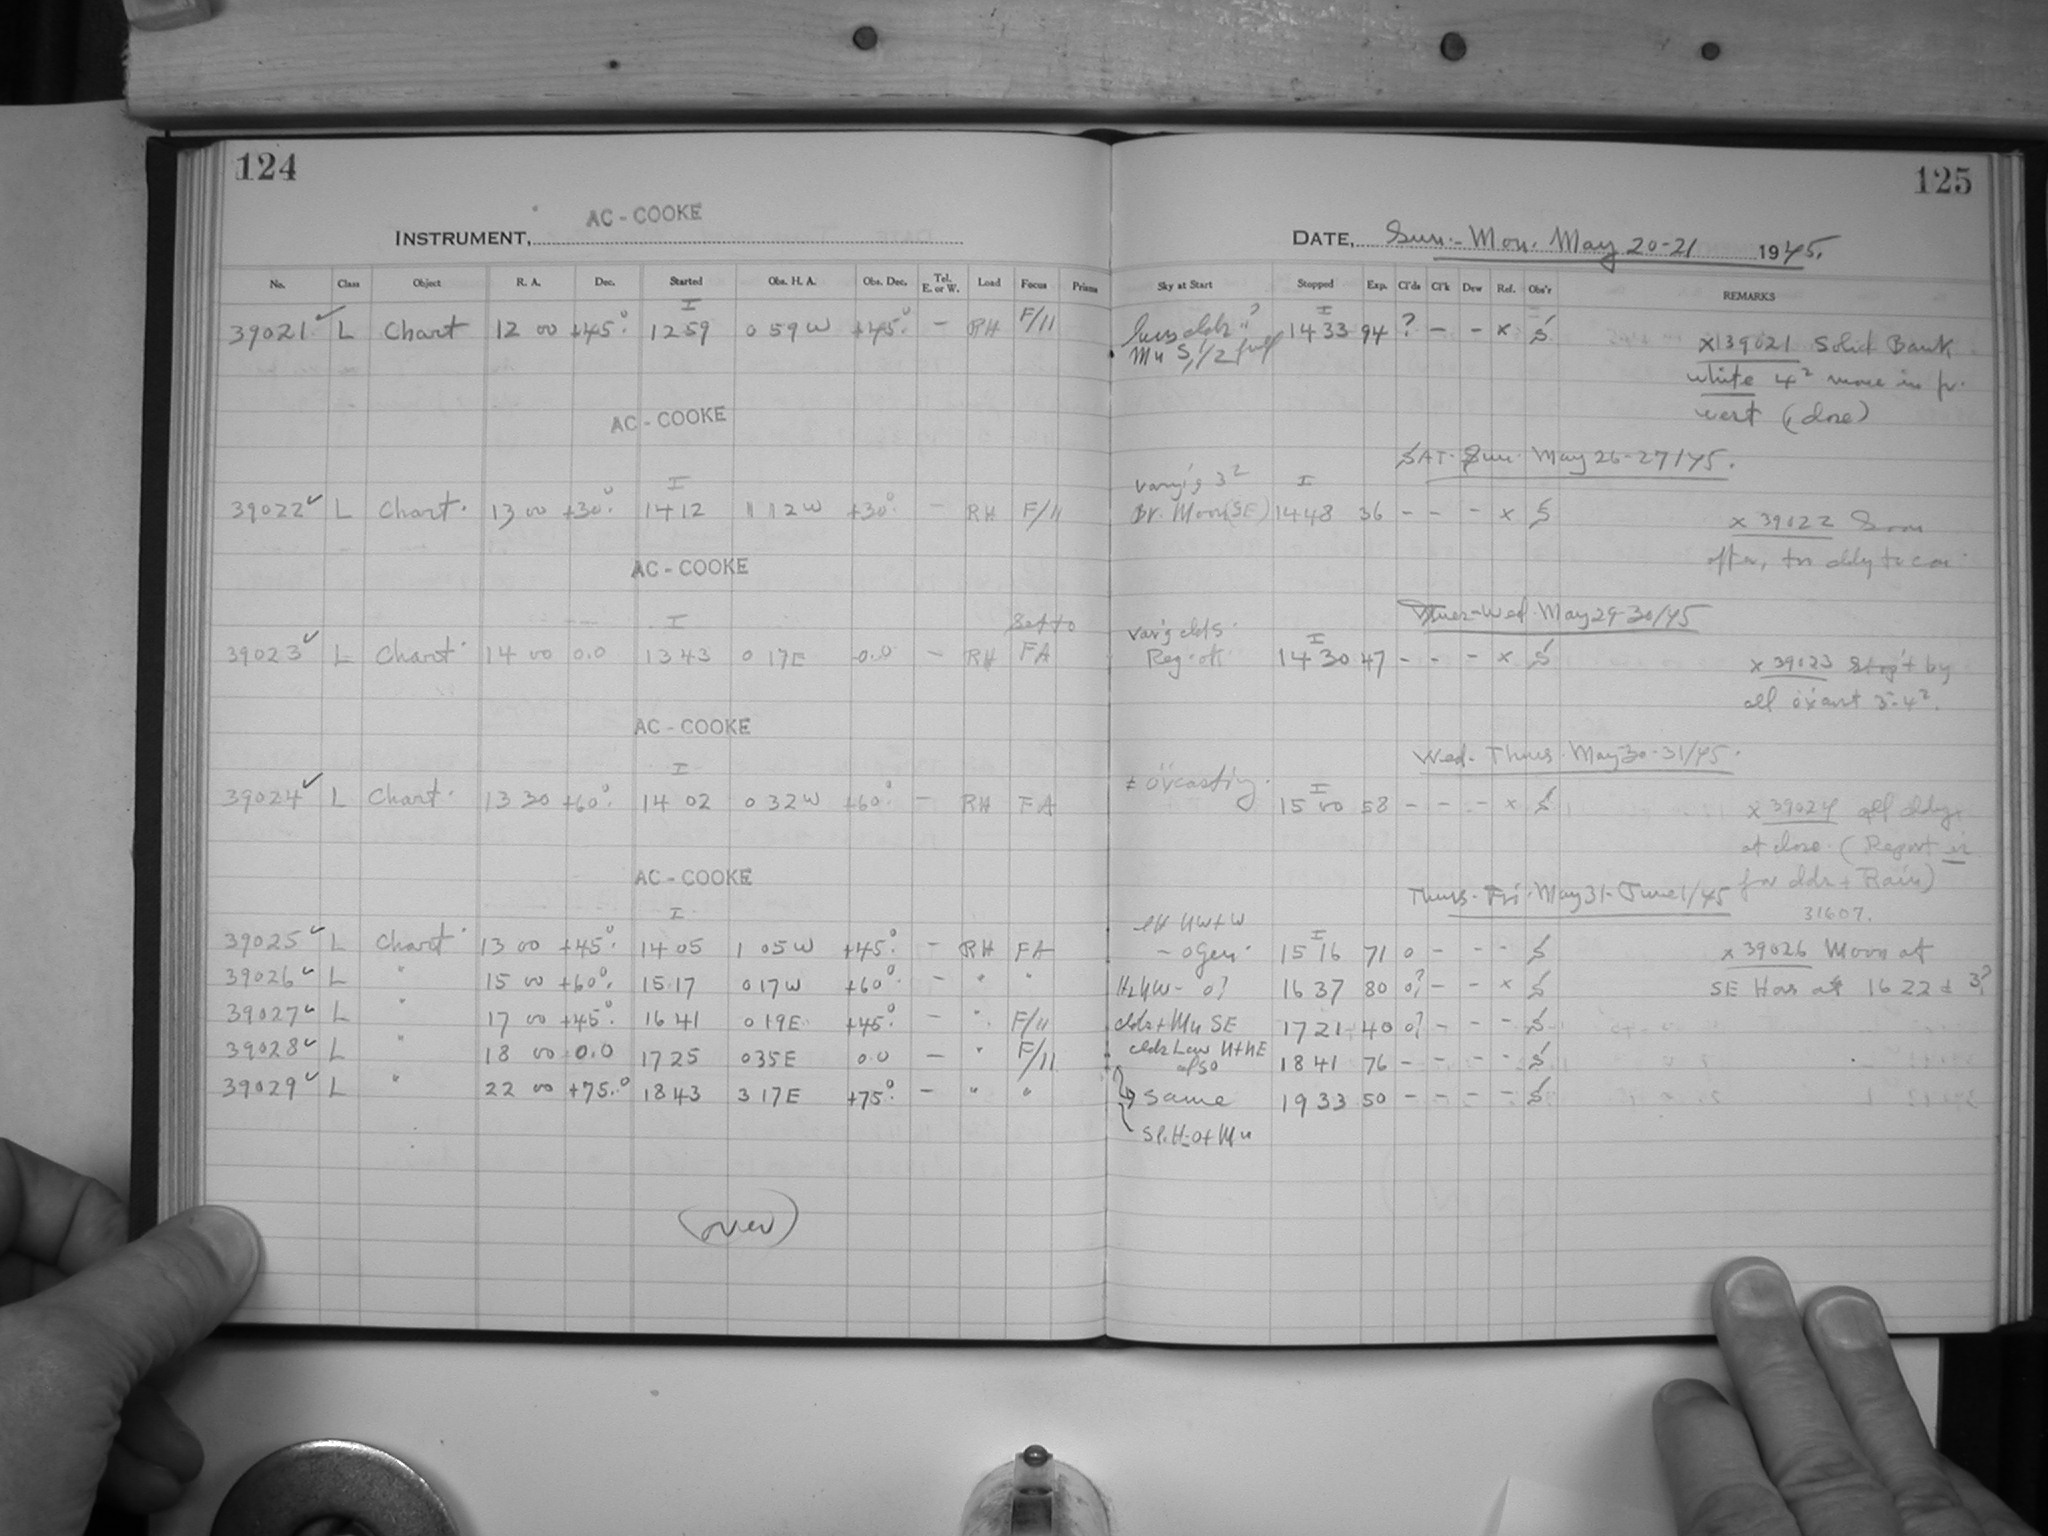 124
AC - COOKE
INSTRUMENT,
No. Class Object R. A. Dec. Started Obs. H. A. Obs. Dec. Tel. E. or W. Load Focus Prisms
I
39021 ✓ L Chart 12 00 +45° 12 59 0 59 W +45° - RH F/11
AC - COOKE
I
39022 ✓ L Chart 13 00 +30° 14 12 1 12 W +30° - RH F/11
AC - COOKE
I Set to
39023 ✓ L Chart 14 00 0.0 13 43 0 17E 0.0 - RH FA
AC - COOKE
I
39024 ✓ L Chart 13 30 +60° 14 02 0 32W +60° - RH FA
AC - COOKE
I
39025 ✓ L Chart 13 00 +45° 14 05 1 05 W +45° - RH FA
39026 ✓ L " 15 00 +60° 15 17 0 17 W +60° - " "
39027 ✓ L " 17 00 +45° 16 41 0 19E +45° - " F/11
39028 ✓ L " 18 00 0.0 17 25 0 35E 0.0 - " F/11
39029 ✓ L " 22 00 +75° 18 43 3 17E +75° - " "
(over)
125
DATE, Sun.- Mon. May 20-21 1945.
Sky at Start Stopped Exp. Cl'ds Cl'k Dew Ref. Obs'r REMARKS
I
14 33 94 ? - - x S
Mn S, 1/2 full
x 39021 Solid Bank
white 4² more in
west (close)
SAT- Sun. May 26-27/45.
vary'g 3² I
Br. Moon (SE) 14 48 36 - - - x S
x 39022 Soon
after, too cldy to
Tues-Wed. May 29-30/45
var'g clds I
Reg. ok 14 30 47 - - - x S
x 39023 Stop't by
all ov'cast 3-4².
Wed- Thurs. May 30-31/45.
± ov'casting I
15 00 58 - - - x S
x 39024 all cldy
at close. (Report is
for clds + Rain)
Thurs- Fri. May 31-June 1/45
31607.
I
15 16 71 0 - - - S
x 39026 Moon at
16 37 80 0? - - x S
SE Has at 16 22 ± 3?
clds + Mn SE 17 21 40 0? - - - S
clds Low N+NE
also 18 41 76 - - - - S
Same 19 33 50 - - - - S